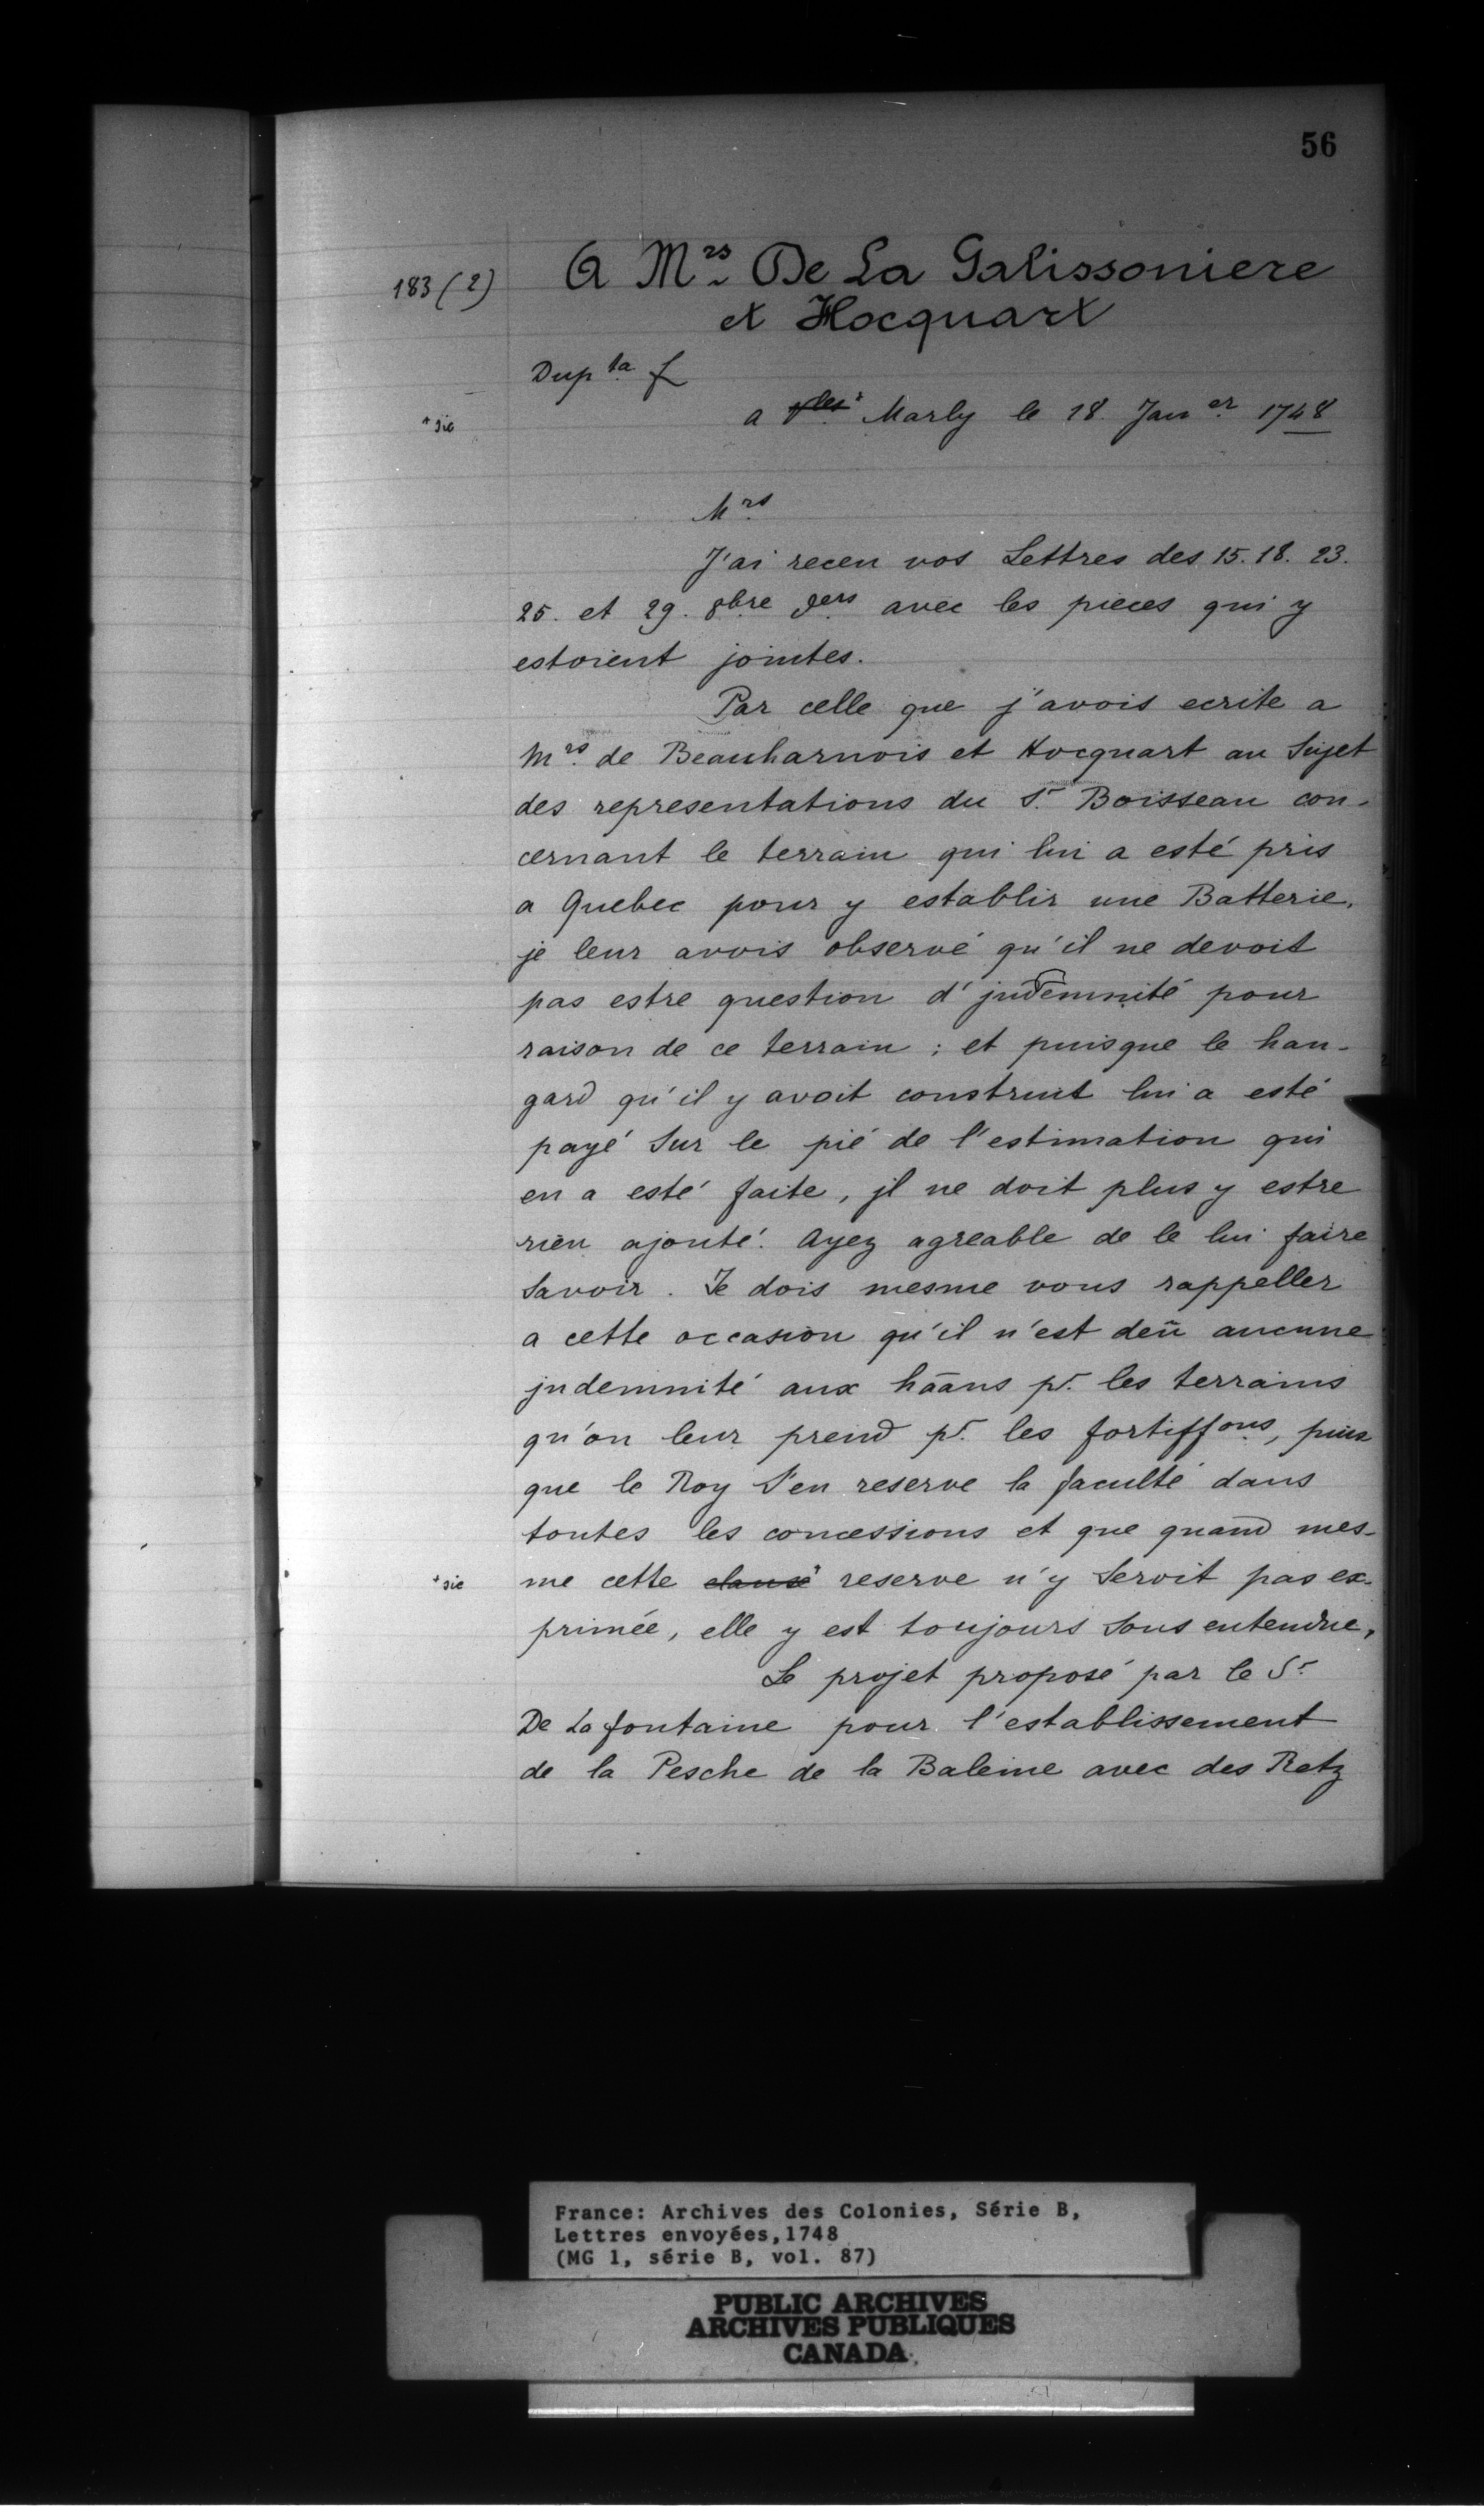 56
183 (2)
A Mrs De La Galissoniere
et Hocquart
Dup ta f
+ sic
a Vles + Marly le 18. Jan er 1748
Mrs
J'ai receu vos Lettres des 15. 18. 23.
25. et 29. 8bre ders avec les pieces qui y
estoient jointes.
Par celle que j'avois ecrite a
Mrs de Beauharnois et Hocquart au Sujet
des representations du Sr Boisseau con-
cernant le terrain qui lui a esté pris
a Quebec pour y establir une Batterie,
je leur avois observé qu'il ne devoit
pas estre question d'jndemnité pour
raison de ce terrain ; et puisque le han-
gard qu'il y avoit construit lui a esté
payé Sur le pié de l'estimation qui
en a esté faite, jl ne doit plus y estre
rien ajouté. Ayez agreable de le lui faire
Savoir. Je dois mesme vous rappeller
a cette occasion qu'il n'est deü aucune
jndemnité aux hãans pr. les terrains
qu'on leur prend pr. les fortiffons, puis
que le Roy S'en reserve la faculté dans
toutes les concessions et que quand mes-
+ sic
me cette clause + reserve n'y Seroit pas ex-
primée, elle y est toujours Sous entendue,
Le projet proposé par le Sr
De Lafontaine pour l'establissement
de la Pesche de la Baleine avec des Retz
France: Archives des Colonies, Série B,
Lettres envoyées,1748
(MG 1, série B, vol. 87)
PUBLIC ARCHIVES
ARCHIVES PUBLIQUES
CANADA